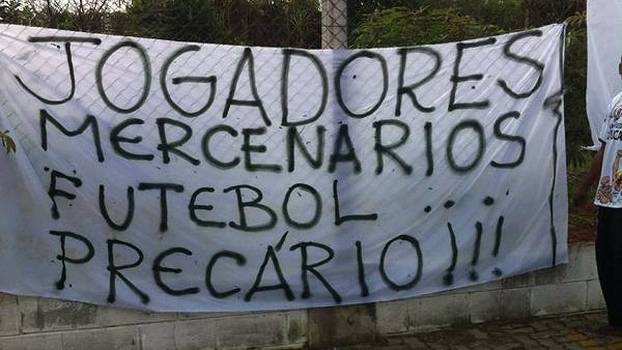 JOGADORES
MERCENARIOS
FUTEBOL...
PRECÁRIO!!!